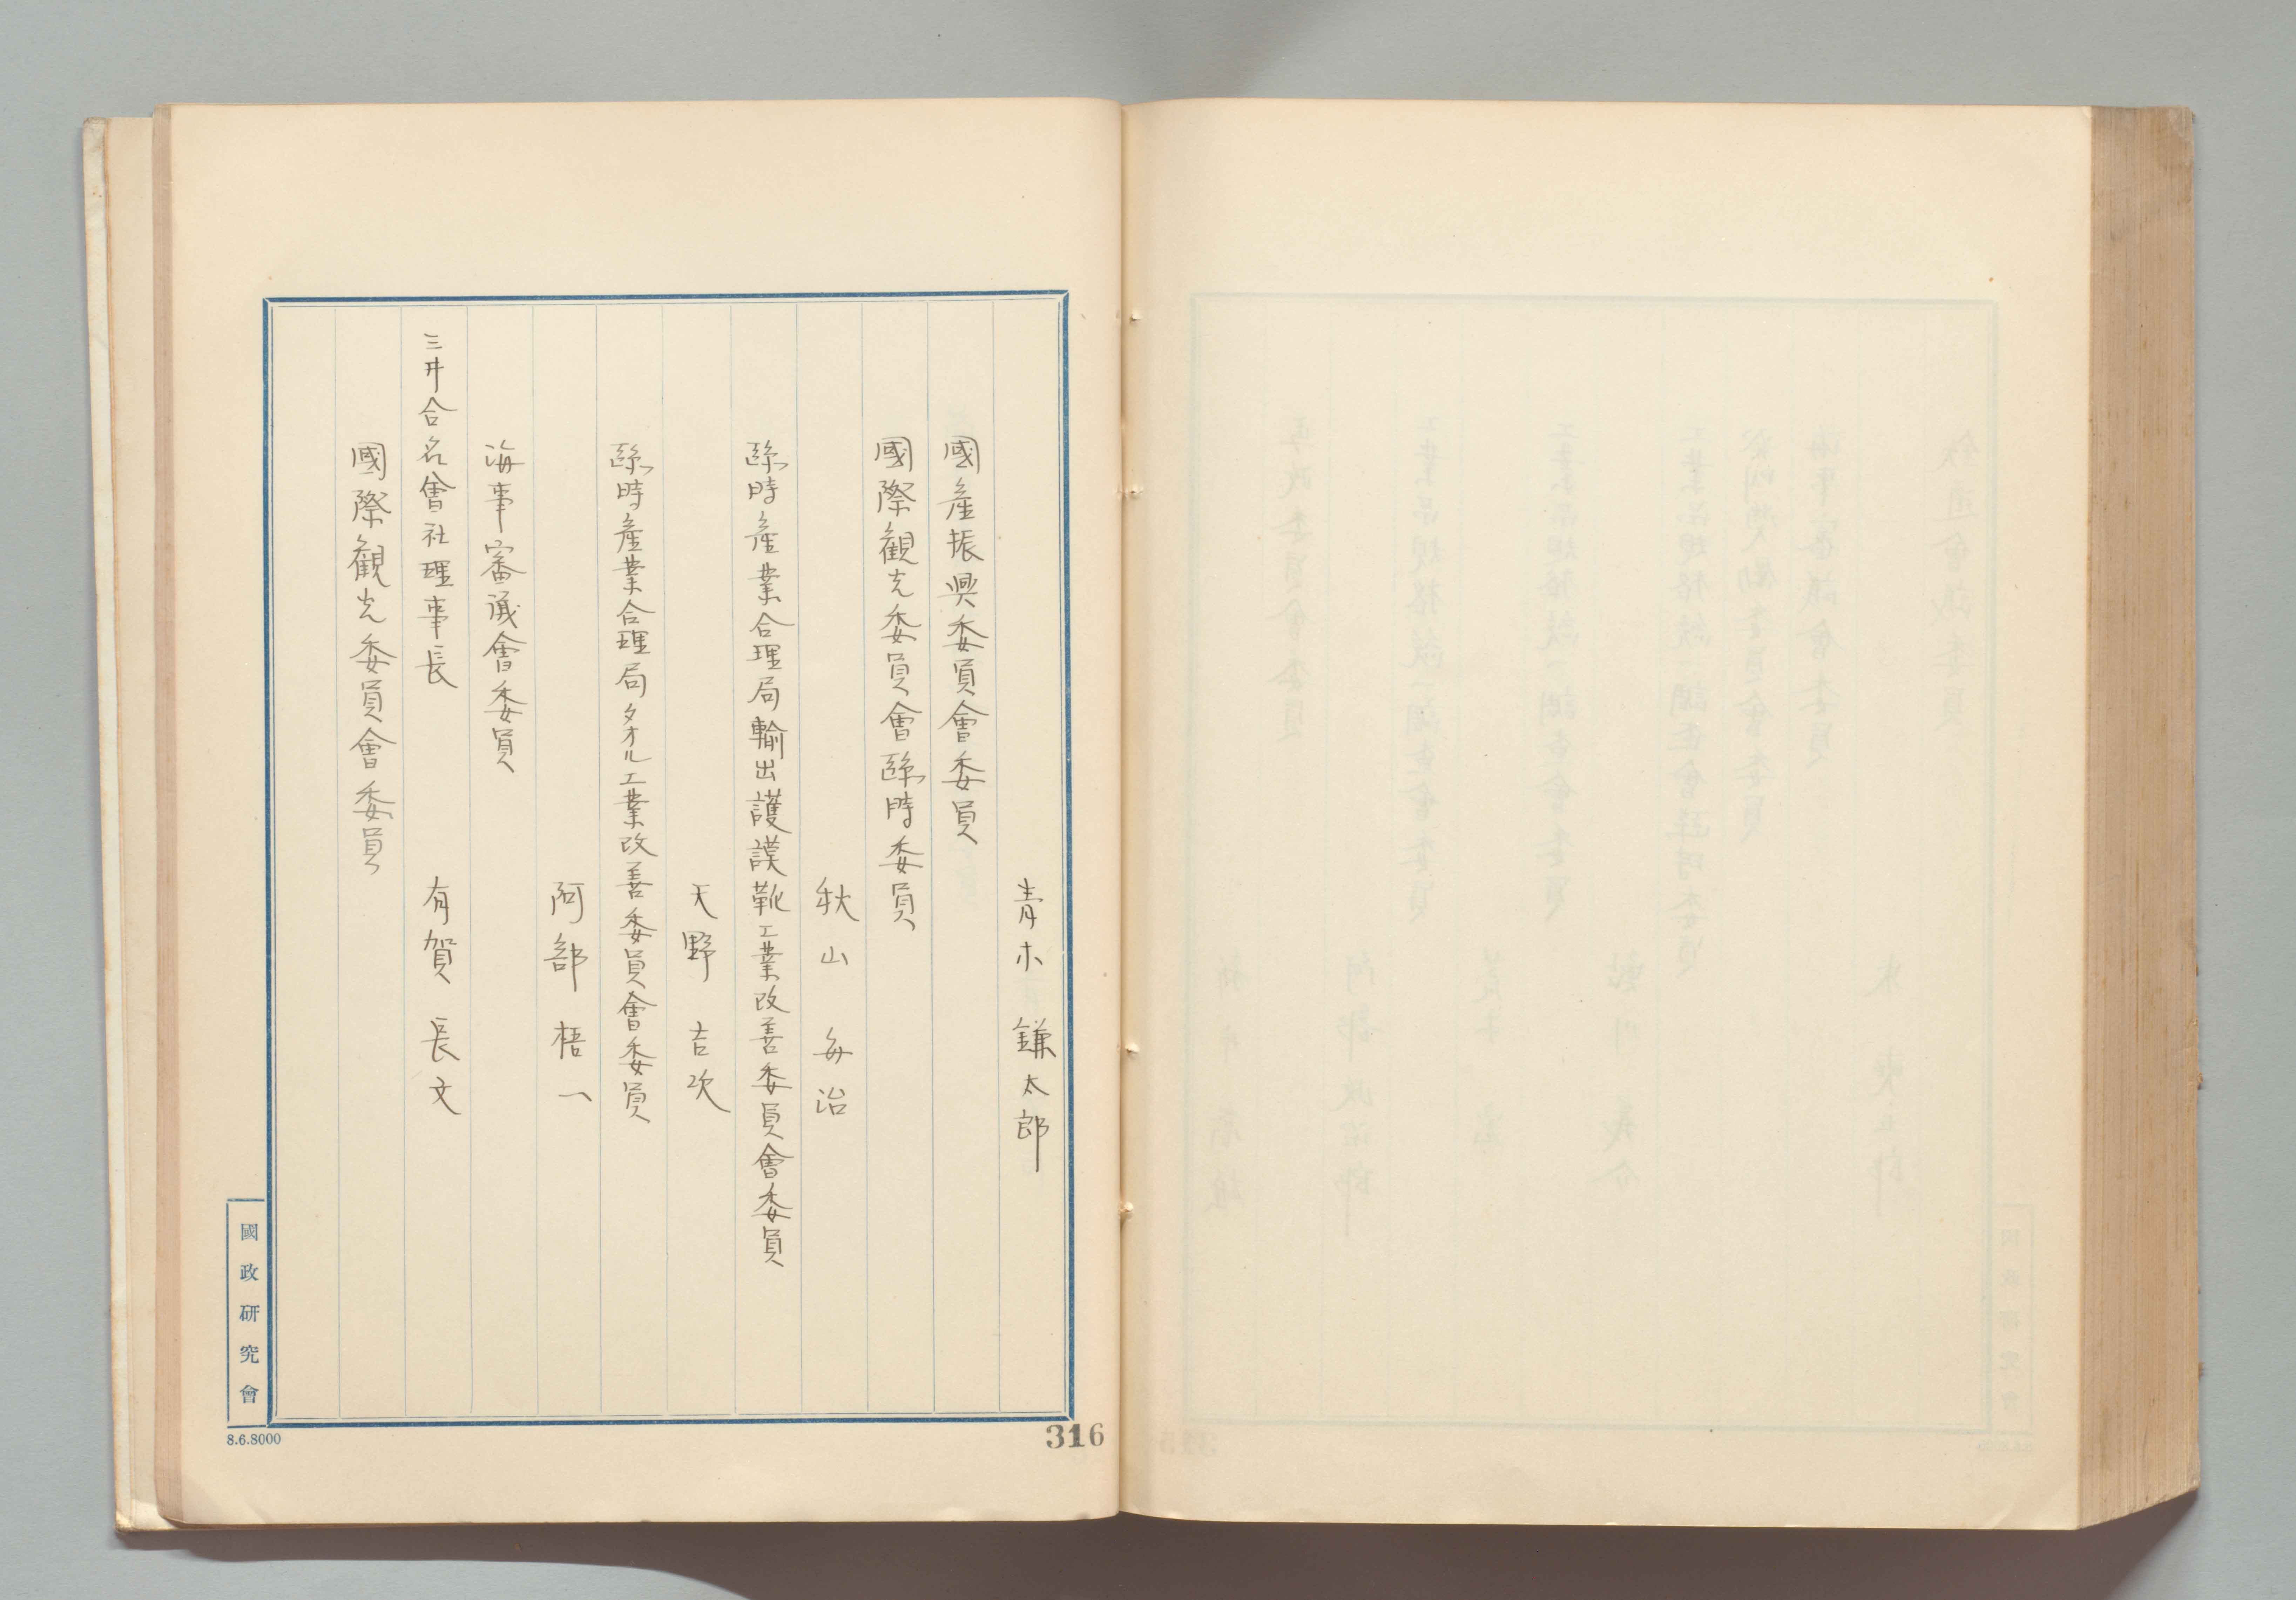 青木 鎌太郎
國產振興委員會委員
國際観光委員會臨時委員
秋山 每治
臨時產業合理局輸出護謨靴工業改善委員會委員
天野 吉次
臨時產業合理局タオル工業改善委員會委員
阿部 梧一
海事審議會委員
三井合名會社理事長 有賀 長文
國際観光委員會委員
國政研究會
8.6.8000
316